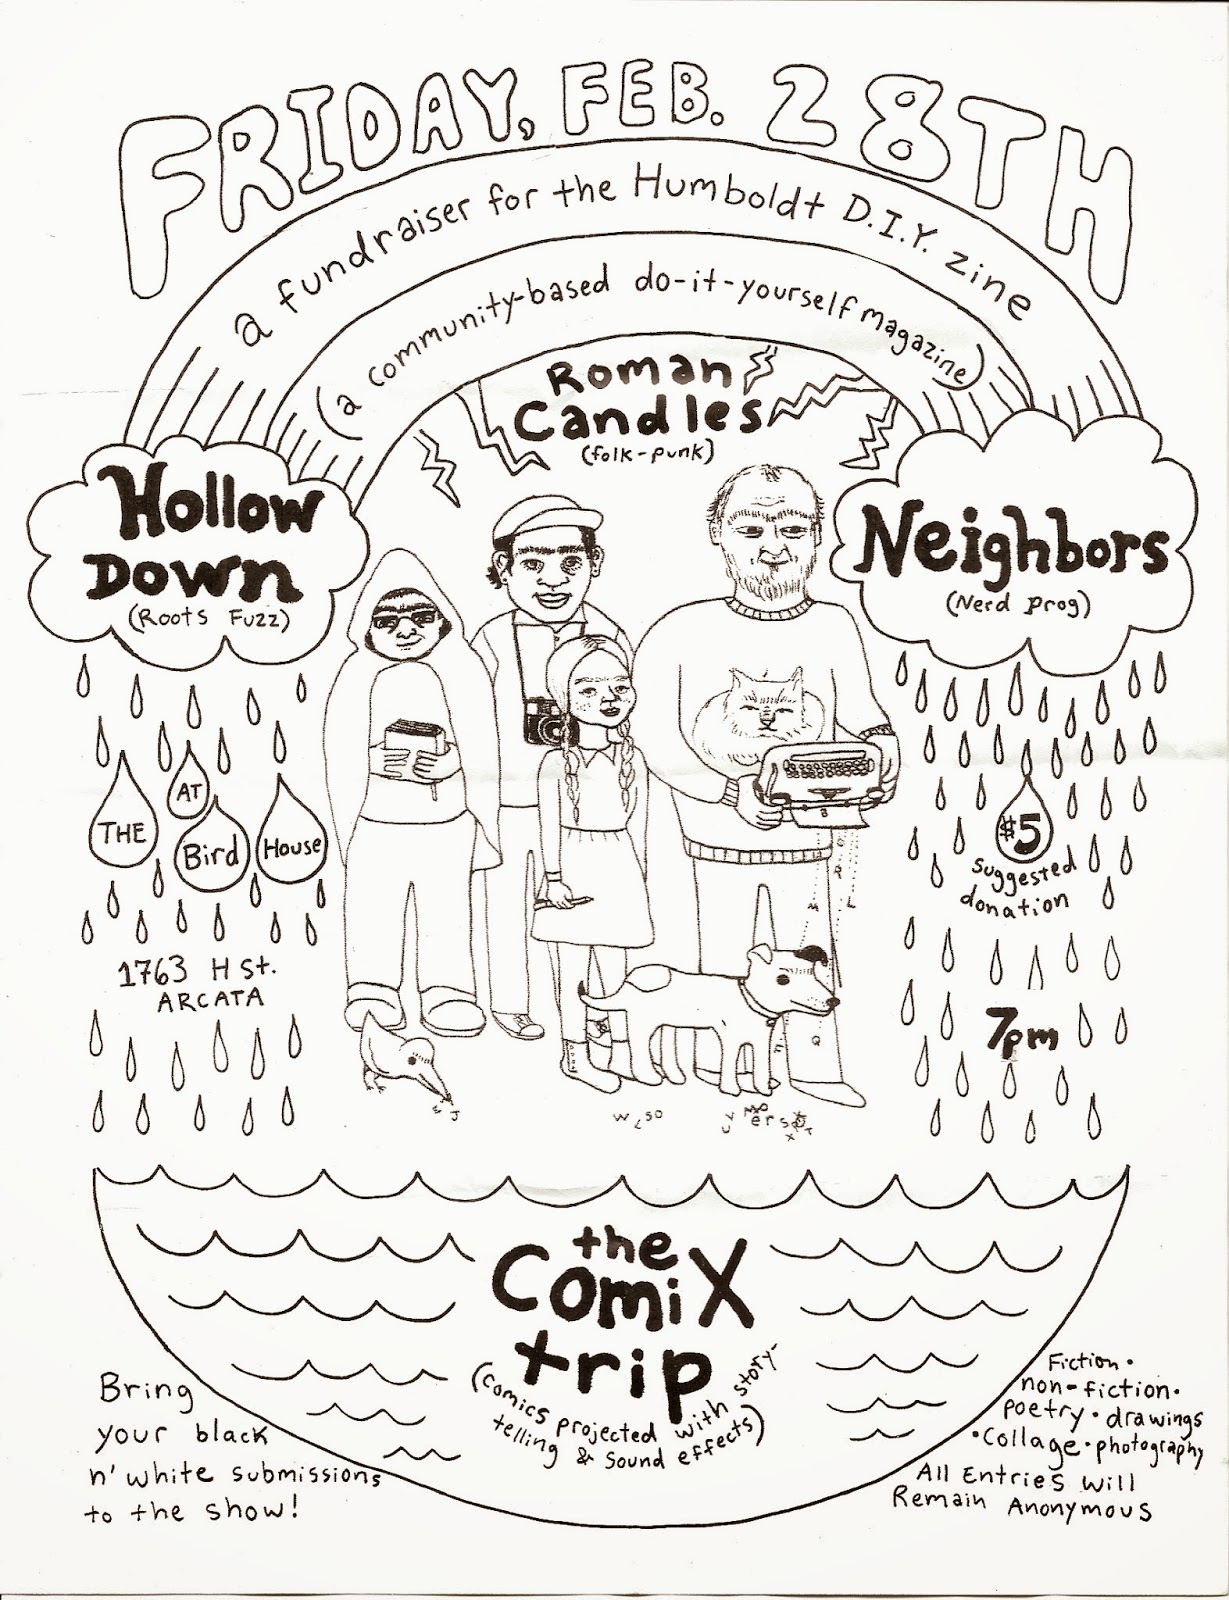 FRIDAY, FEB. 28TH
a fundraiser for the Humboldt D.I.Y. zine
(a community-based do-it-yourself magazine)
Roman
Candles
(folk-punk)
Hollow
Down
(Roots Fuzz)
Neighbors
(Nerd Prog)
THE
AT
Bird
House
1763 H St.
ARCATA
$5
suggested
donation
7pm
the
ComiX
trip
(comics projected with story-
telling & sound effects)
Bring
your black
n' white submissions
to the show!
Fiction •
non-fiction •
poetry • drawings
• collage • photography
All Entries will
Remain Anonymous